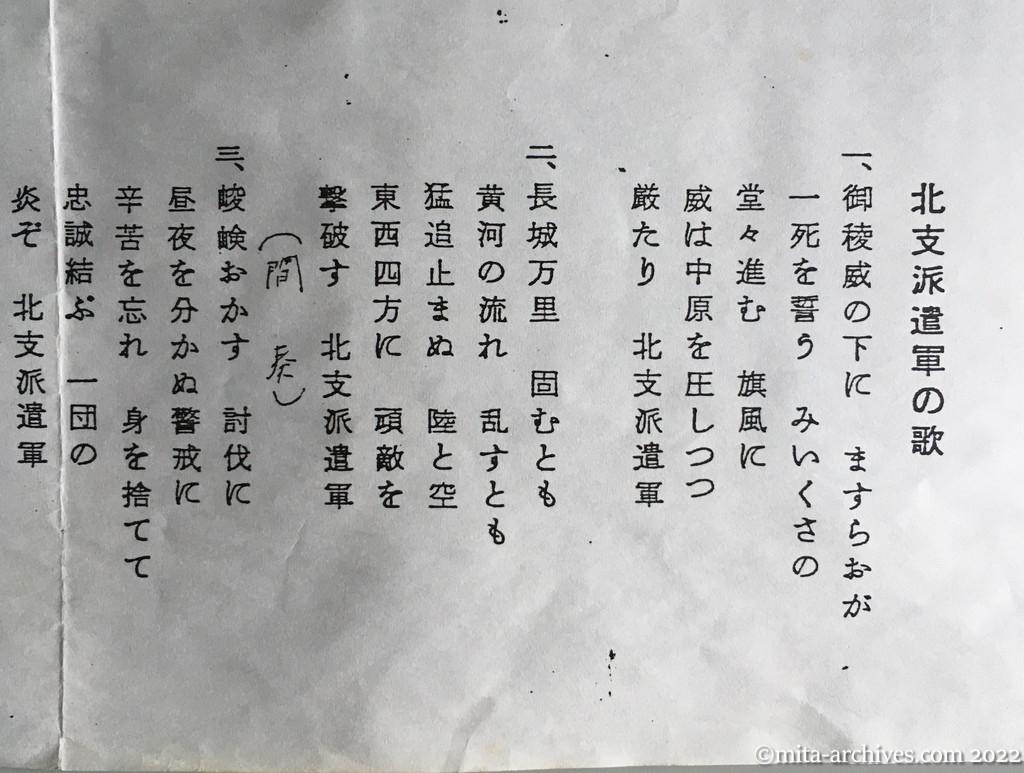 北支派遣軍の歌
一、御稜威の下に　ますらおが
一死を誓う　みいくさの
堂々進む　旗風に
威は中原を圧しつつ
厳たり　北支派遣軍
二、長城万里　固むとも
黄河の流れ　乱すとも
猛追止まぬ　陸と空
東西四方に　頑敵を
撃破す　北支派遣軍
（間　奏）
三、峻険おかす　討伐に
昼夜を分かぬ警戒に
辛苦を忘れ　身を捨てて
忠誠結ぶ　一団の
炎ぞ　北支派遣軍
©mita-archives.com 2022